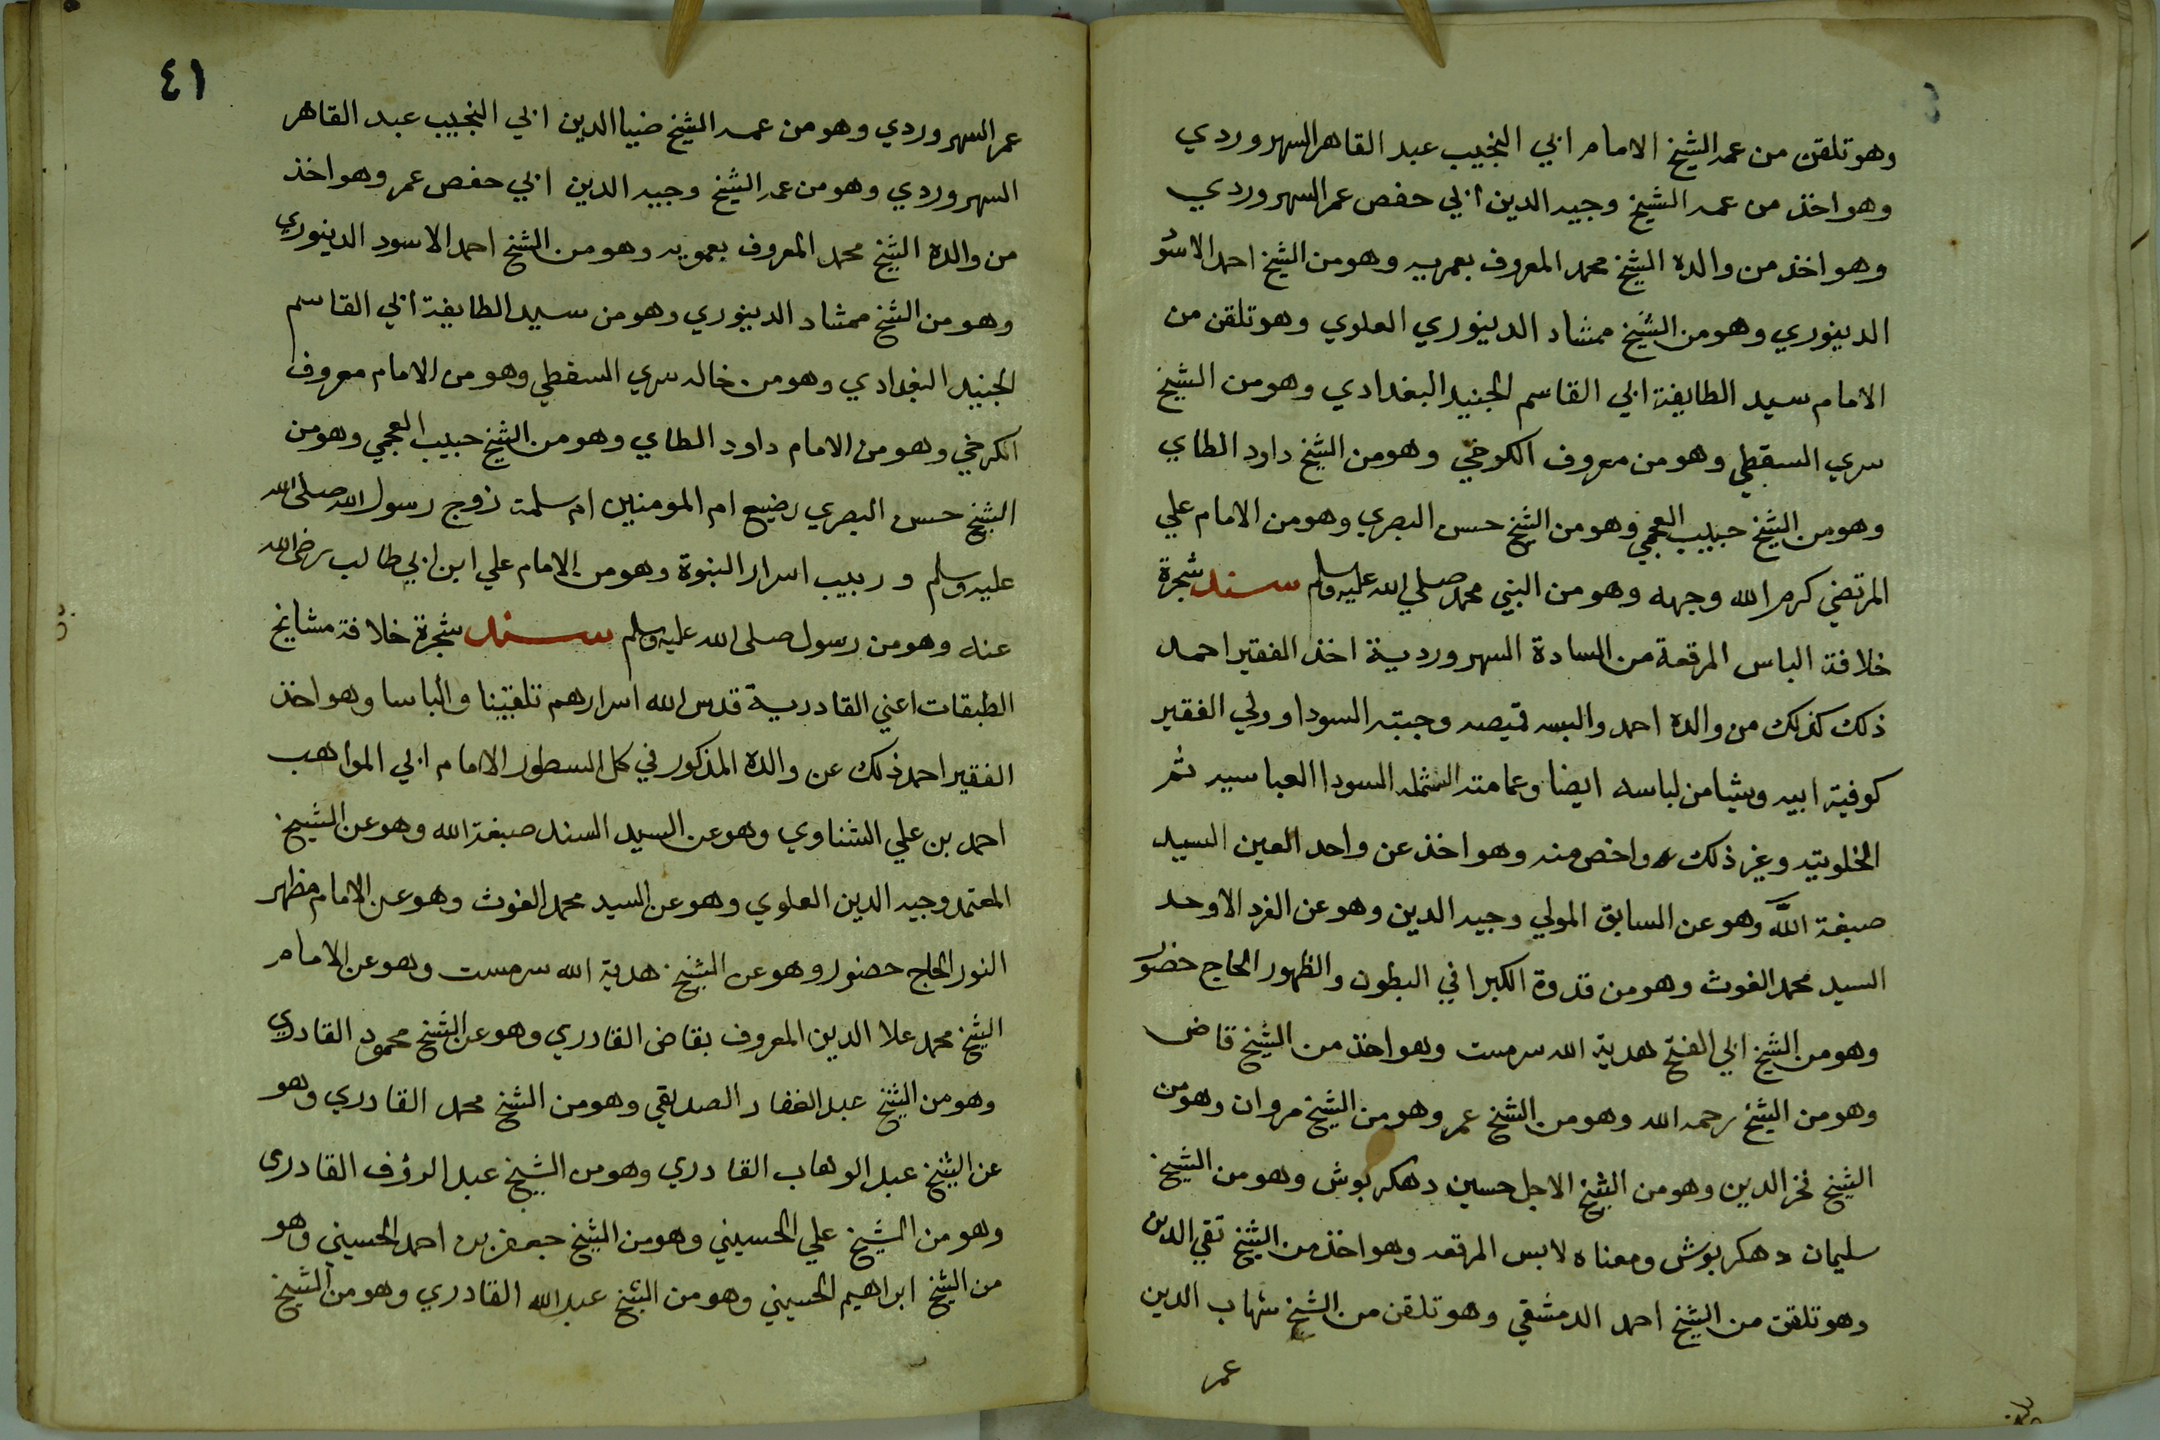 وهو تلقن من عمه الشيخ الامام ابي النجيب عبد القاهر السهروردي
وهو اخذ من عمه الشيخ وجيه الدين ابي حفص عمر السهروردي
وهو اخذ من والده الشيخ محمد المعروف بعمويه وهو من الشيخ احمد الاسود
الدينوري وهو من الشيخ ممشاد الدينوري العلوي وهو تلقن من
الامام سيد الطايفة ابي القاسم الجنيد البغدادي وهو من الشيخ
سري السقطي وهو من معروف الكوخي وهو من الشيخ داود الطاي
وهو من الشيخ حبيب العجمي وهو من الشيخ حسن البصري وهو من الامام علي
المرتضي كرم الله وجهه وهو من النبي محمد صلي الله عليه وسلم سند شجرة
خلافة الباس المرقعة من السادة السهروردية اخذ الفقير احمد
ذلك كذلك من والده احمد والبسه قميصه وجبته السودا وولي الفقير
كوفية ابيه وشيا من لباسه ايضا وعمامته الشمله السودا العباسيه ثم
الخلوتيه وغير ذلك واخص منه وهو اخذ عن واحد العين السيد
صبغة الله وهو عن السابق المولي وجيه الدين وهو عن الفرد الاوحد
السيد محمد الغوث وهو من قدوة الكبرا في البطون والظهور الحاج حضور
وهو من الشيخ ابي الفتح هدية الله سرمست وهو اخذ من الشيخ قاضي
وهو من الشيخ رحمه الله وهو من الشيخ عمر وهو من الشيخ مروان وهو من
الشيخ فخر الدين وهو من الشيخ الاجل حسين دهكربوش وهو من الشيخ
سليمان دهكربوش ومعناه لابس المرقعه وهو اخذ من الشيخ تقي الدين
وهو تلقن من الشيخ احمد الدمشقي وهو تلقن من الشيخ شهاب الدين
عمر
٤١
عمر السهروردي وهو من عمه الشيخ ضيا الدين ابي النجيب عبد القاهر
السهروردي وهو من عمه الشيخ وجيه الدين ابي حفص عمر وهو اخذ
من والده الشيخ محمد المعروف بعمويه وهو من الشيخ احمد الاسود الدينوري
وهو من الشيخ ممشاد الدينوري وهو من سيد الطايفة ابي القاسم
الجنيد البغدادي وهو من خاله سري السقطي وهو من الامام معروف
الكرخي وهو من الامام داود الطاي وهو من الشيخ حبيب العجمي وهو من
الشيخ حسن البصري رضيع ام المومنين ام سلمة زوج رسول الله صلى الله
عليه وسلم وربيب اسرار النبوة وهو من الامام علي ابن ابي طالب رضي الله
عنه وهو من رسول صلى الله عليه وسلم سند شجرة خلافة مشايخ
الطبقات اعني القادرية قدس الله اسرارهم تلقينا والباسا وهو اخذ
الفقير احمد ذلك عن والده المذكور في كل السطور الامام ابي المواهب
احمد بن علي الشناوي وهو عن السيد السند صبغة الله وهو عن الشيخ
المعتمد وجيه الدين العلوي وهو عن السيد محمد الغوث وهو عن الامام مظهر
النور الحاج حضور وهو عن الشيخ هدية الله سرمست وهو عن الامام
الشيخ محمد علا الدين المعروف بقاضي القادري وهو عن الشيخ محمود القادري
وهو من الشيخ عبد الغفار الصديقي وهو من الشيخ محمد القادري وهو
عن الشيخ عبد الوهاب القادري وهو من الشيخ عبد الرؤف القادري
وهو من الشيخ علي الحسيني وهو من الشيخ جعفر بن احمد الحسيني وهو
من الشيخ ابراهيم الحسيني وهو من الشيخ عبد الله القادري وهو من الشيخ